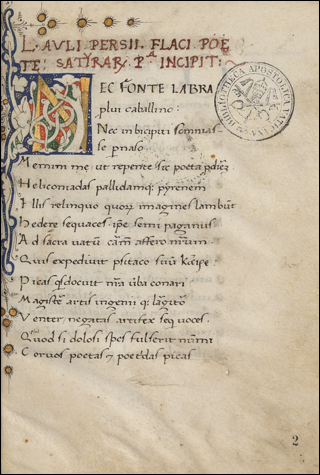 L. AVLI PERSII. FLACI. POE
TE: SATIRAR: Pᴬ INCIPIT:
NEC FONTE LABRA
plui caballino:
Nec in bicipiti somnias-
se pnaso
Memini me, ut repente sic poeta
Heliconiadas pallidamq; pyrenem
Illis relinquo quoꝝ imagines lambūt
Hedere sequaces. ipe semi paganus
Ad sacra uatū carm̄ affero nr̄um.
Quis expediuit psitaco suū
Picas docuit nr̄a uba conari
Magistr̄ artis ingenii q;
Venter negatas artifex seq uoces.
Quod si dolosi spes fulserit numi
Coruos poetas & poetidas picas
BIBLIOTHECA APOSTOLICA VATICANA
2